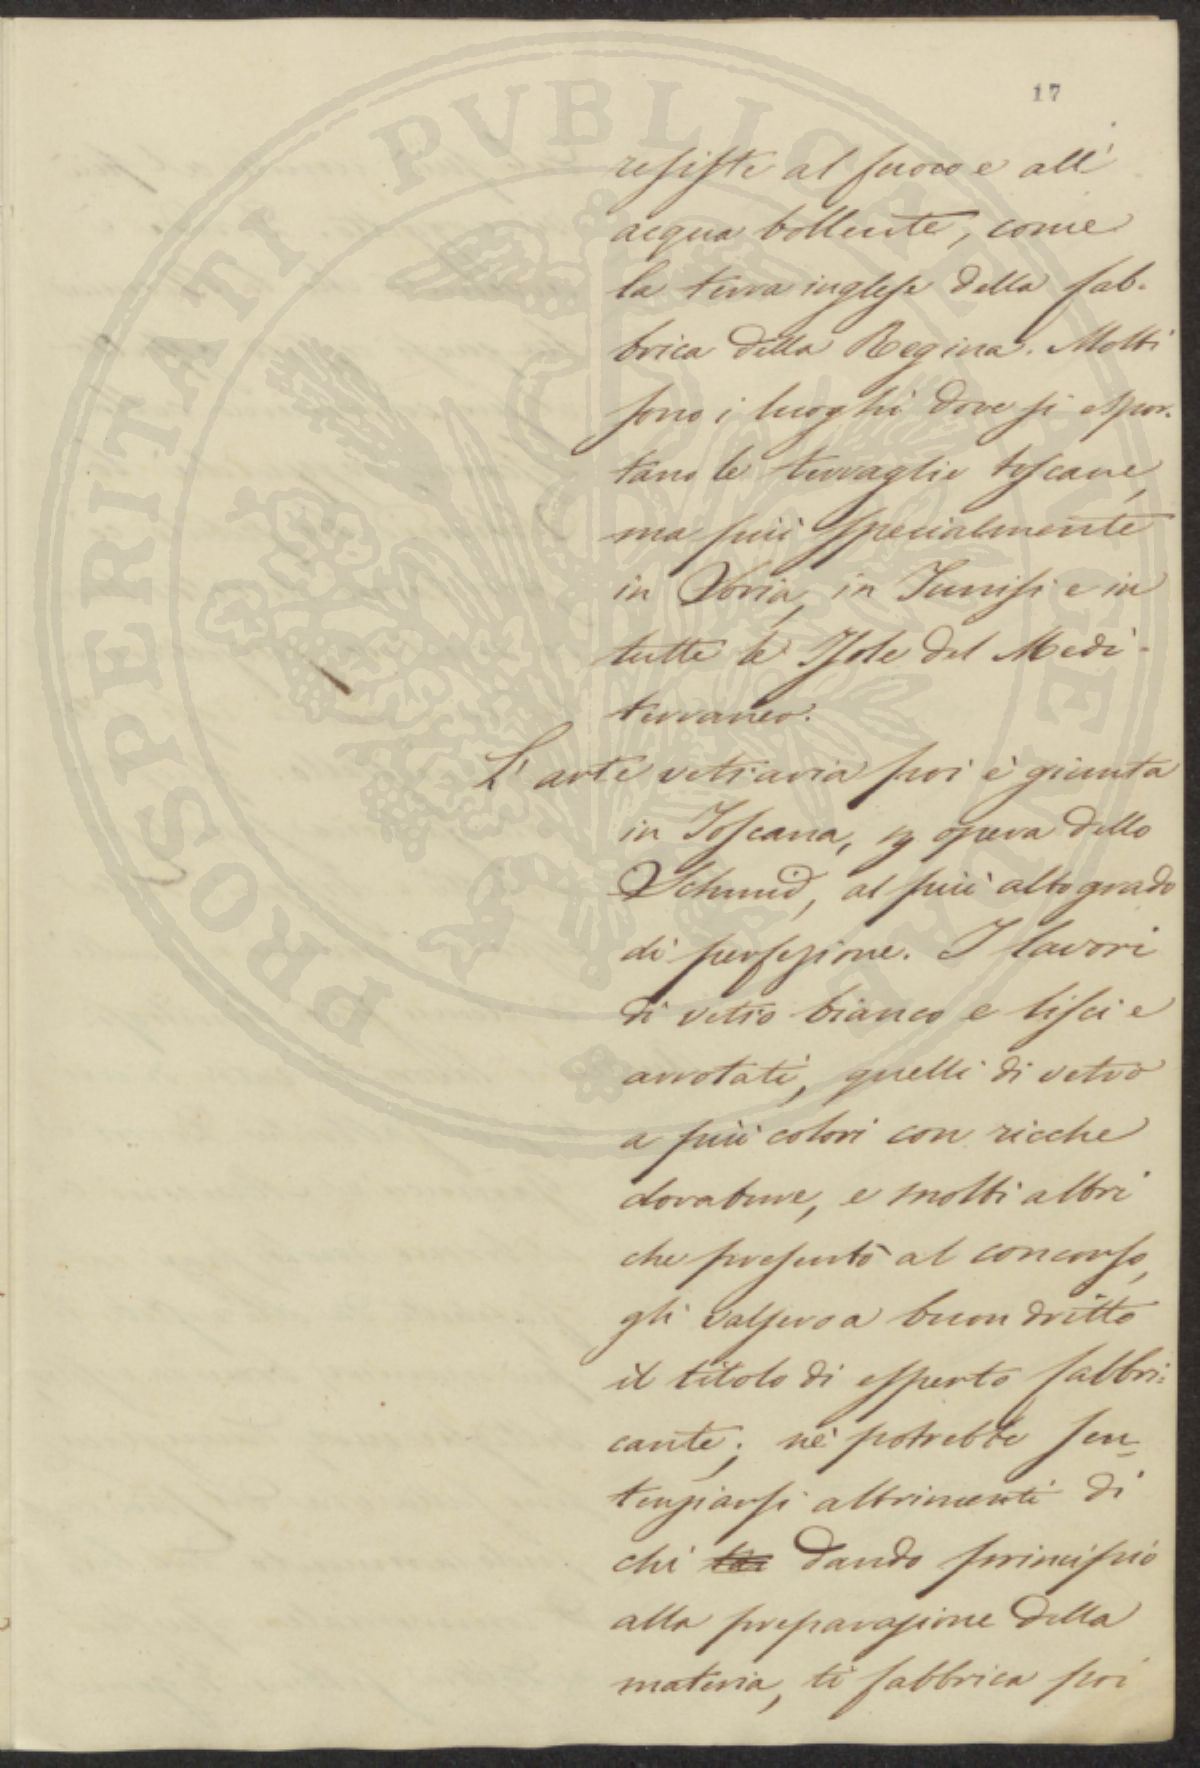 17
resiste al fuoco e all'
acqua bollente, come
la terra inglese della fab-
brica della Regina. Molti
sono i luoghi dove si espor-
tano le terraglie toscane,
ma più specialmente
in Soria, in Tunisi e in
tutte le Isole del Medi-
terraneo.
L'arte vetraria poi è giunta
in Toscana, per opera dello
Schmid, al più alto grado
di perfezione. I lavori
di vetro bianco e lisci e
arrotati, quelli di vetro
a più colori con ricche
dorature, e molti altri
che presentò al concorso,
gli valsero a buon dritto
il titolo di esperto fabbri-
cante; nè potrebbe sen-
tenziarsi altrimenti di
chi dando principio
alla preparazione della
materia, ti fabbrica poi
PROSPERITATI PVBLICAE AVGENDAE